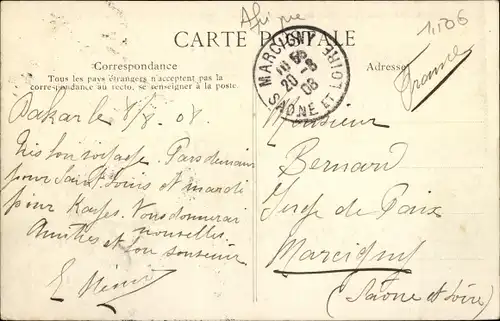 Afrique
1,506
CARTE POSTALE
MARCIGNY
20 - 8
08
SAONE ET LOIRE
Correspondance
Tous les pays étrangers n'acceptent pas la
correspondance au recto, se renseigner à la poste.
Adresse
France
Dakar le 8/8.08.
Très bon voyage. Pars demain
pour Saint Louis et mardi
pour Kayes. Vous donnerai
nouvelles.
Amitiés et bon souvenir
Monsieur
Bernard
Juge de Paix
Marcigny
(Saône et Loire)